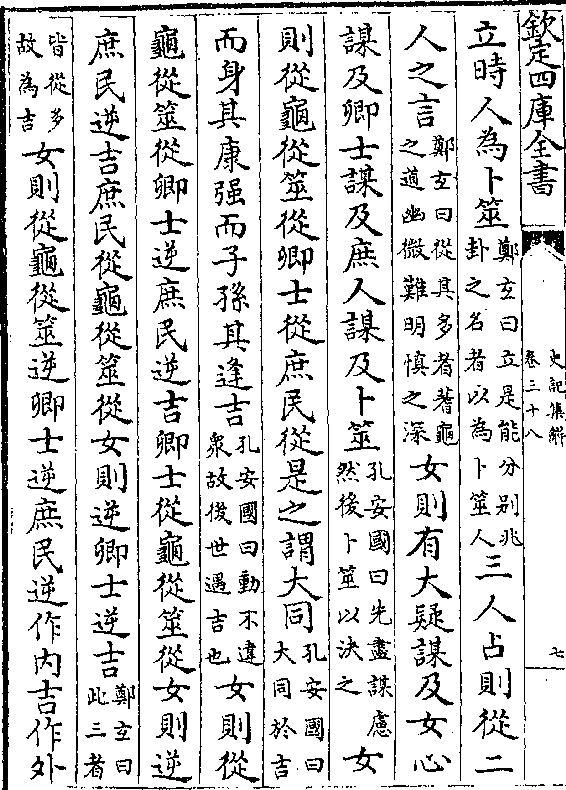 欽定四庫全書
史記集解
卷三十八
七
立時人為卜筮鄭𤣥曰立是能分别兆卦之名者以為卜筮人三人占則從二
人之言鄭𤣥曰從其多者蓍龜之道幽微難明慎之深女則有大疑謀及女心
謀及卿士謀及庶人謀及卜筮孔安國曰先盡謀慮然後卜筮以決之女
則從龜從筮從卿士從庶民從是之謂大同孔安國曰大同於吉
而身其康强而子孫其逢吉孔安國曰動不違衆故後世遇吉也女則從
龜從筮從卿士逆庶民逆吉卿士從龜從筮從女則逆
庶民逆吉庶民從龜從筮從女則逆卿士逆吉鄭𤣥曰此三者
皆從多故為吉女則從龜從筮逆卿士逆庶民逆作内吉作外